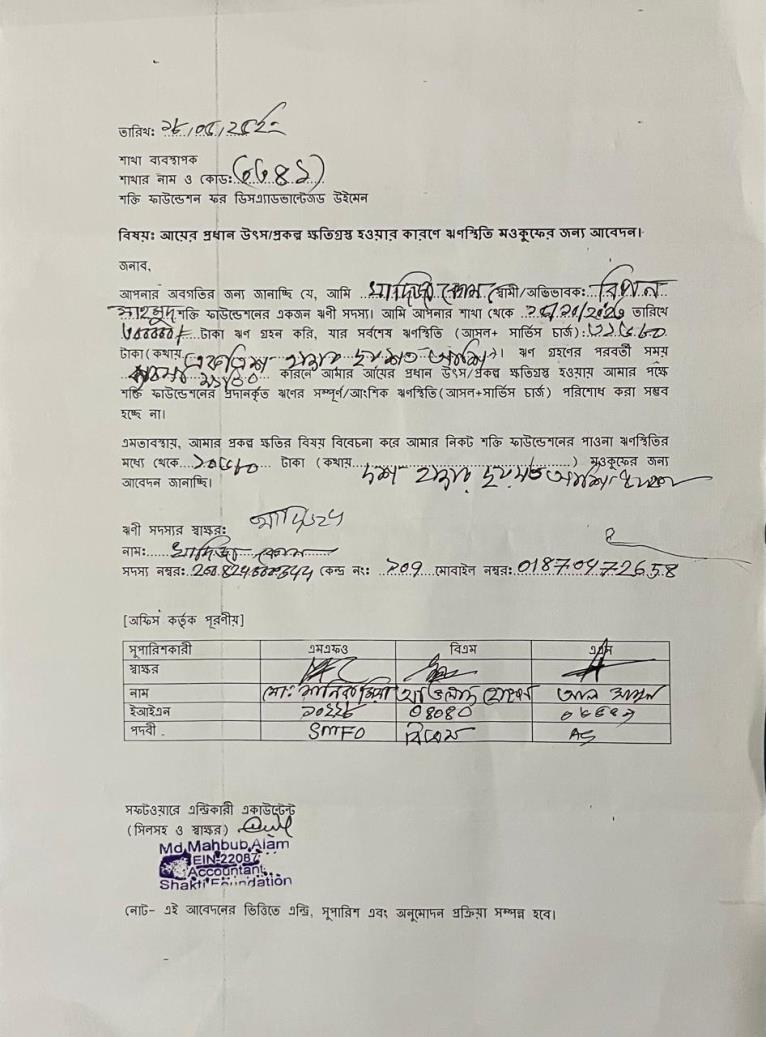 তারিখ:
শাখা ব্যবস্থাপক
শাখার নাম ও কোড:
শক্তি ফাউন্ডেশন ফর ডিসএ্যাডভান্টেজড উইমেন
বিষয়: আয়ের প্রধান উৎস/প্রকল্প ক্ষতিগ্রস্থ হওয়ার কারণে ঋণস্থিতি মওকুফের জন্য আবেদন।
জনাব,
আপনার অবগতির জন্য জানাচ্ছি যে, আমি খাদিজা বেগম স্বামী/অভিভাবক:
শক্তি ফাউন্ডেশনের একজন ঋণী সদস্য। আমি আপনার শাখা থেকে তারিখে
টাকা ঋণ গ্রহন করি, যার সর্বশেষ ঋণস্থিতি (আসল+ সার্ভিস চার্জ):
টাকা (কথায় একত্রিশ হাজার ছয়শত আশি)। ঋণ গ্রহণের পরবর্তী সময়
কারনে আমার আয়ের প্রধান উৎস/প্রকল্প ক্ষতিগ্রস্থ হওয়ায় আমার পক্ষে
শক্তি ফাউন্ডেশনের প্রদানকৃত ঋণের সম্পূর্ণ/আংশিক ঋণস্থিতি(আসল+সার্ভিস চার্জ) পরিশোধ করা সম্ভব
হচ্ছে না।
এমতাবস্থায়, আমার প্রকল্প ক্ষতির বিষয় বিবেচনা করে আমার নিকট শক্তি ফাউন্ডেশনের পাওনা ঋণস্থিতির
মধ্যে থেকে ১০৬৮০ টাকা (কথায় দশ হাজার ছয়শত আশি টাকা) মওকুফের জন্য
আবেদন জানাচ্ছি।
ঋণী সদস্যর স্বাক্ষর: খাদিজা
নাম: খাদিজা বেগম
সদস্য নম্বর: কেন্দ্র নং: ১০৭ মোবাইল নম্বর: 01870472658
[অফিস কর্তৃক পূরণীয়]
সুপারিশকারী এমএফও বিএম এএস
স্বাক্ষর
নাম
ইআইএন ০৪০৪০
পদবী SMFO বিএম AS
সফটওয়ারে এন্ট্রিকারী একাউন্টেন্ট
(সিলসহ ও স্বাক্ষর)
Md. Mahbub Alam
EIN-22087
Accountant
Shakti Foundation
নোট- এই আবেদনের ভিত্তিতে এন্ট্রি, সুপারিশ এবং অনুমোদন প্রক্রিয়া সম্পন্ন হবে।